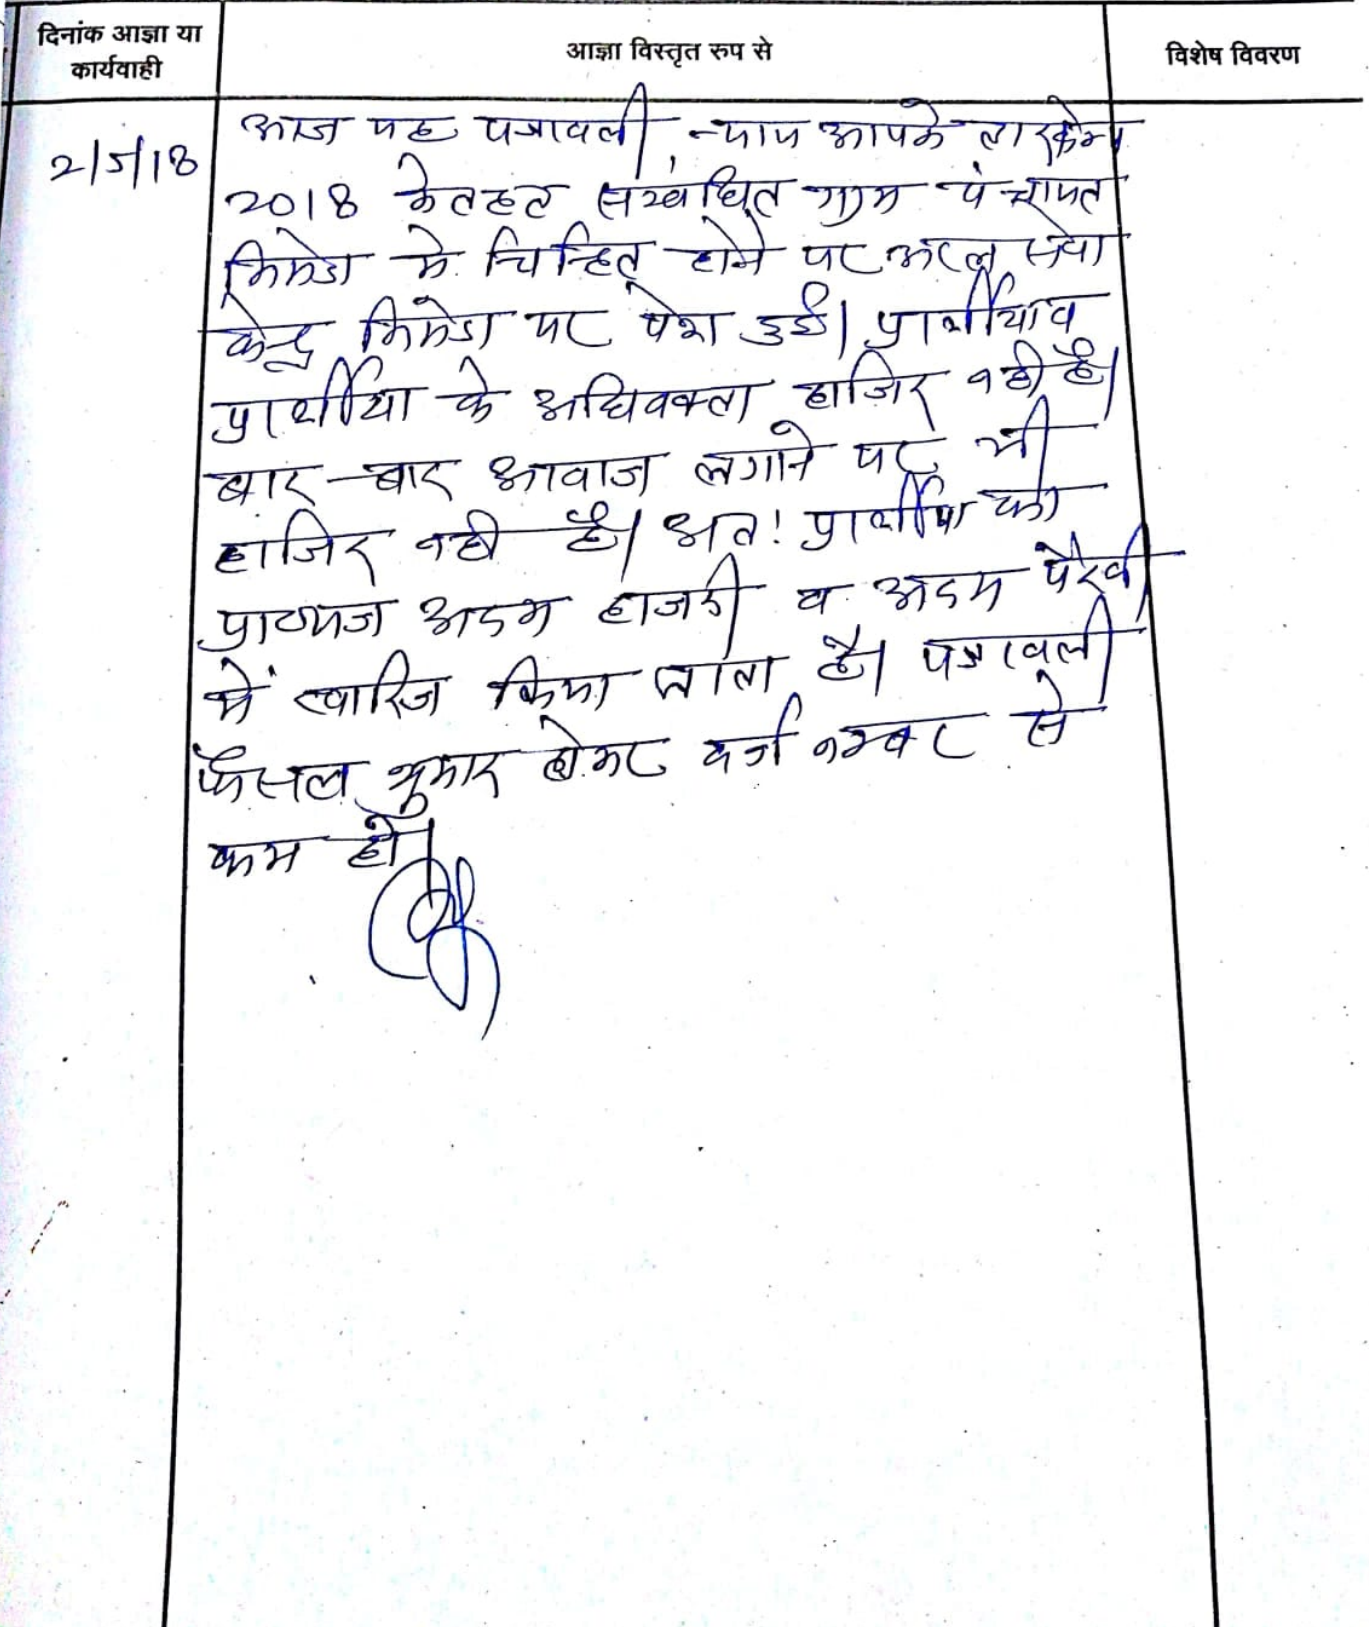 दिनांक आज्ञा या
कार्यवाही
आज्ञा विस्तृत रुप से
विशेष विवरण
2/5/18
आज यह पत्रावली न्याय आपके द्वार केम्प
2018 के तहत संबंधित ग्राम पंचायत
में चिन्हित होने पर अटल सेवा
केन्द्र पर पेश हुई। प्रार्थीया व
प्रार्थीया के अधिवक्ता हाजिर नही है।
बार-बार आवाज लगाने पर भी
हाजिर नही है। अत: प्रार्थीया का
अदम हाजरी व अदम पैरवी
में खारिज किया जाता है। पत्रावली
फैसल शुमार होकर दर्ज नम्बर से
कम हो।